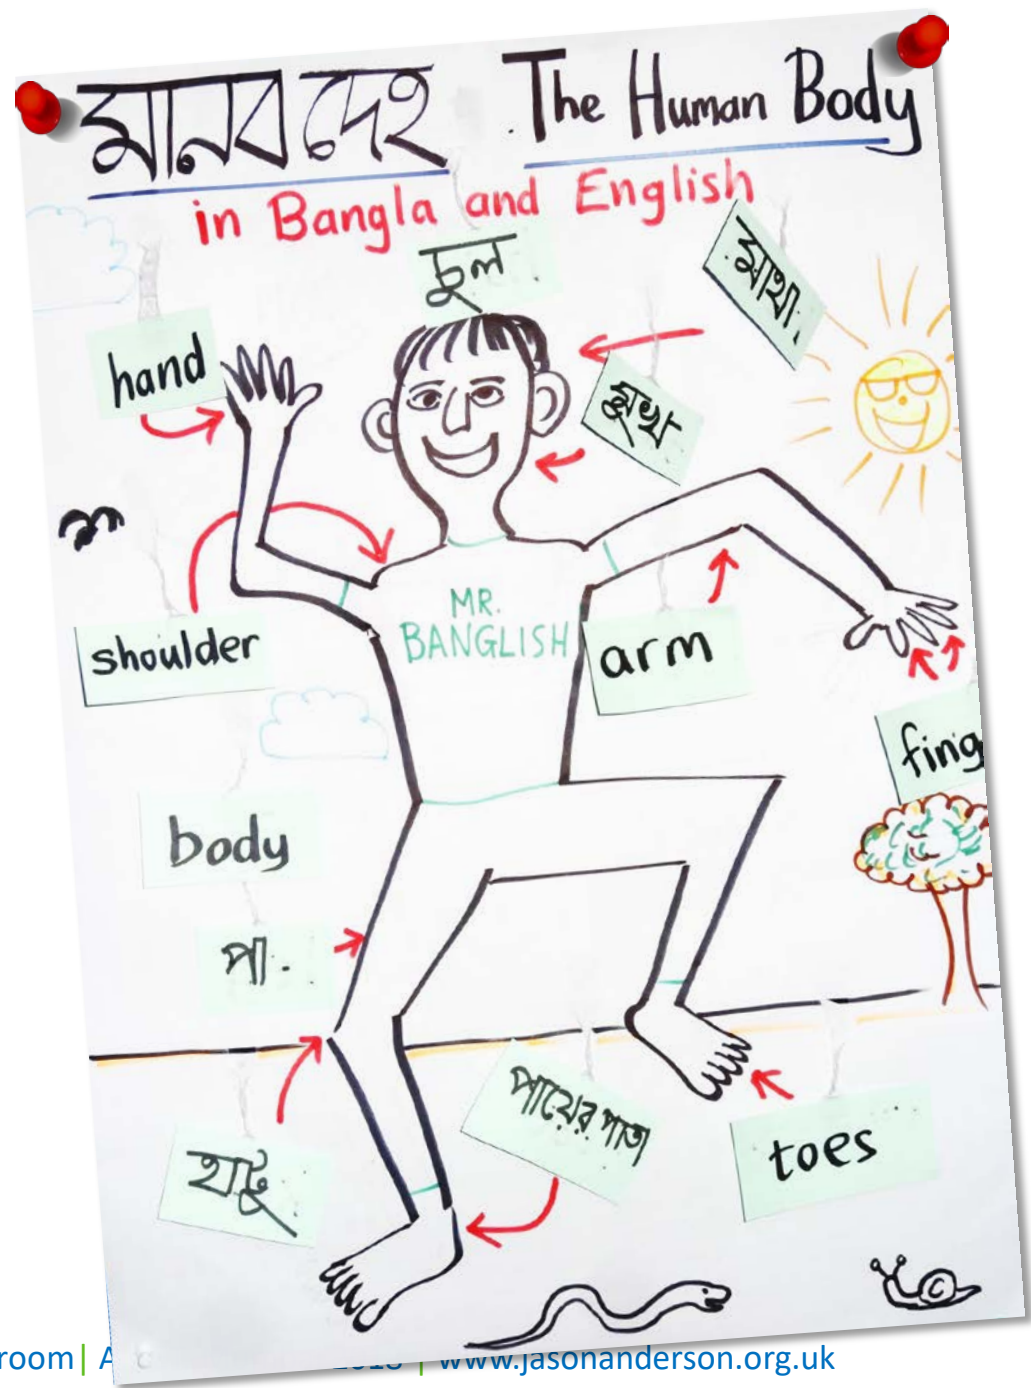 মানব দেহ The Human Body
in Bangla and English
চুল
মাথা
hand
মুখ
MR.
BANGLISH
shoulder
arm
fing
body
পা
হাটু
পায়ের পাতা
toes
room | A
2018 | www.jasonanderson.org.uk